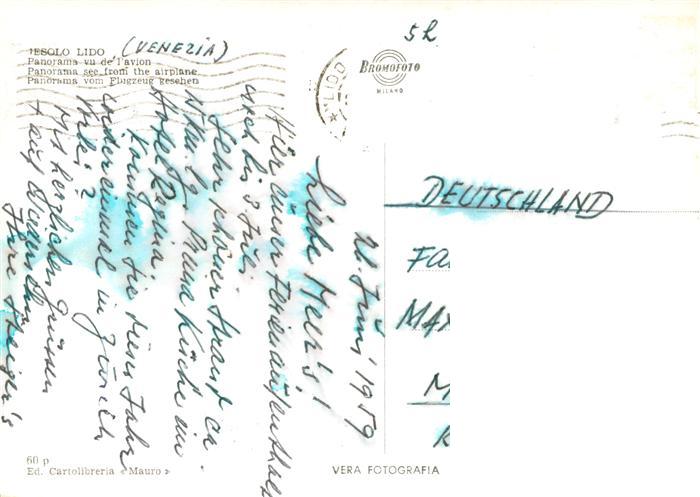 JESOLO LIDO (VENEZIA)
Panorama vu de l'avion
Panorama see from the airplane
Panorama vom Flugzeug gesehen
5h
LIDO
BROMOFOTO
MILANO
21. Juni 1959
Liebe Meer's!
Hier unser Ferienaufenthalt
noch bis 3 Juli.
Sehr schöner Strand ca
Prima Küche im
Hotel Regina.
Kommen Sie dieses Jahr
wieder einmal in Zürich
vorbei?
Mit herzlichen Grüssen
+ auf Wiedersehen
Ihre Steiger's
DEUTSCHLAND
FA
MA
M
60 p
Ed. Cartolibreria «Mauro»
VERA FOTOGRAFIA